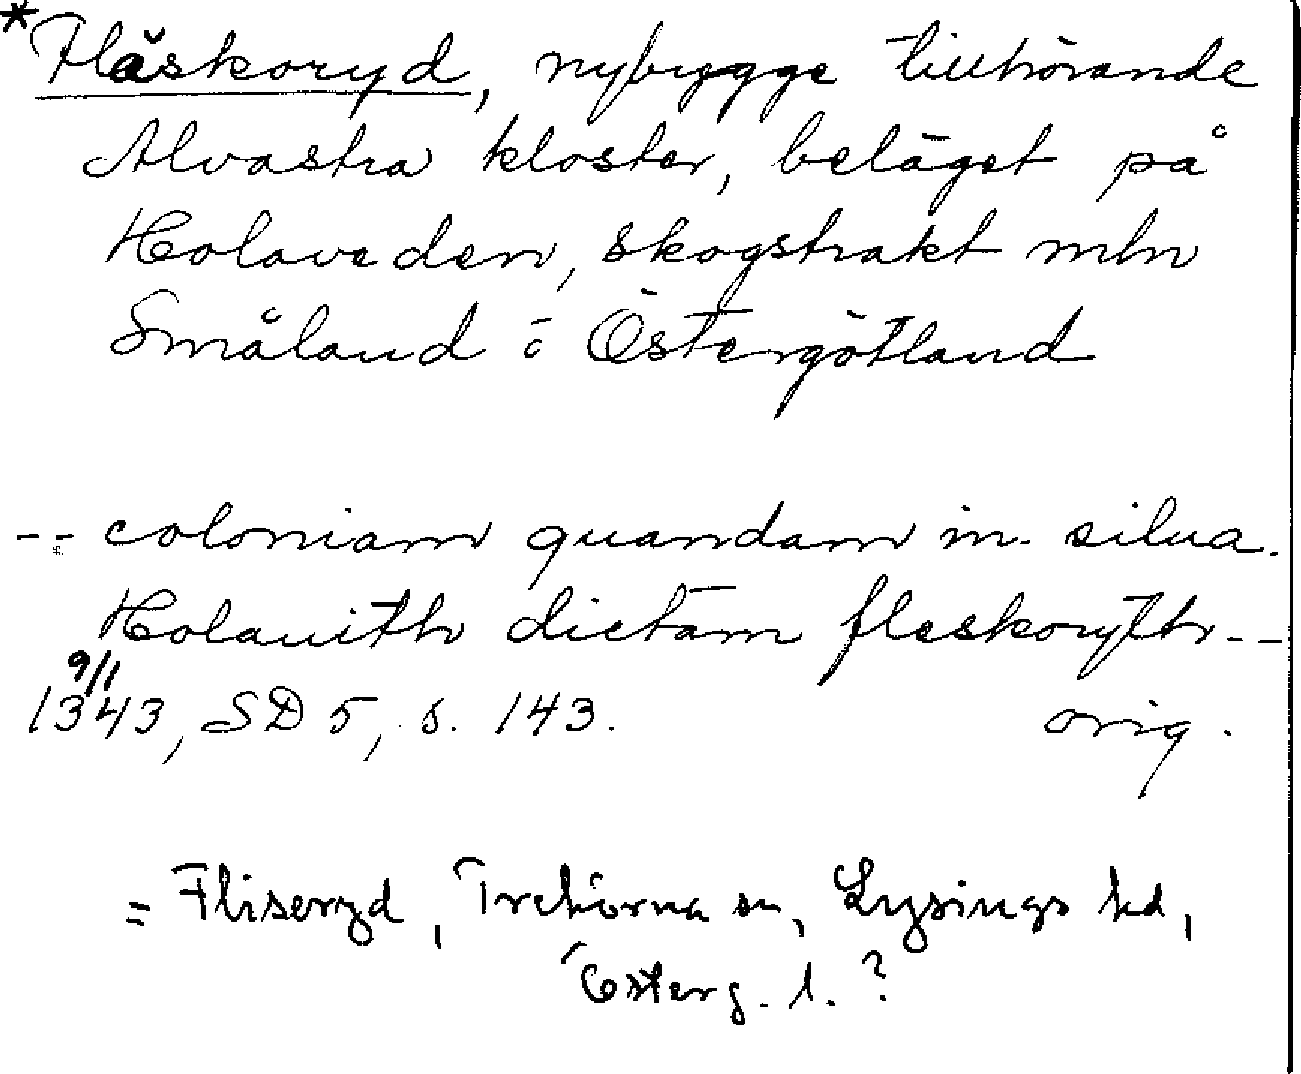 *Fläskoryd, nybygge tillhörande
Alvastra kloster, beläget på
Holaveden, skogstrakt mln
Småland o Östergötland
-- coloniam quandam in silua
Holauith dictam fleskoryth--
9/1
1343, SD 5, s. 143. orig.
= Fliseryd, Trehörna sn, Lysings hd,
Österg. l. ?